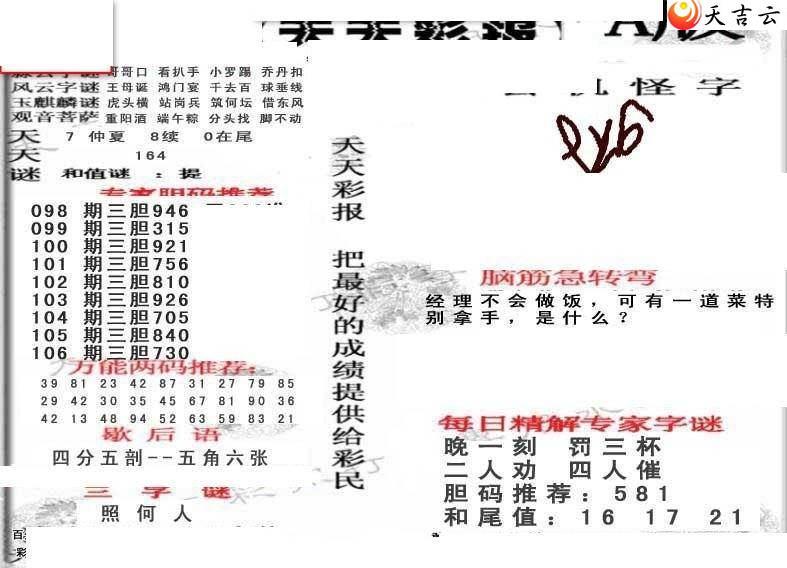 天吉云
天天彩报
字谜 哥哥口 看扒手 小罗踢 乔丹扣
风云字谜 王母诞 鸿门宴 干去百 球垂线
玉麒麟谜 虎头横 站岗兵 筑何坛 借东风
观音菩萨 重阳酒 端午粽 分头找 脚不动
天 7 仲夏 8续 0在尾
天 164
谜 和值谜 : 提
专家胆码推荐
098 期三胆946
099 期三胆315
100 期三胆921
101 期三胆756
102 期三胆810
103 期三胆926
104 期三胆705
105 期三胆840
106 期三胆730
万能两码推荐:
39 81 23 42 87 31 27 79 85
29 42 30 35 45 67 81 90 36
42 13 48 94 52 63 59 83 21
歇后语
四分五剖--五角六张
三字谜
照何人
百
彩
天天彩报 把最好的成绩提供给彩民
玄机怪字
脑筋急转弯
经理不会做饭，可有一道菜特
别拿手，是什么？
每日精解专家字谜
晚一刻 罚三杯
二人劝 四人催
胆码推荐：581
和尾值：16 17 21